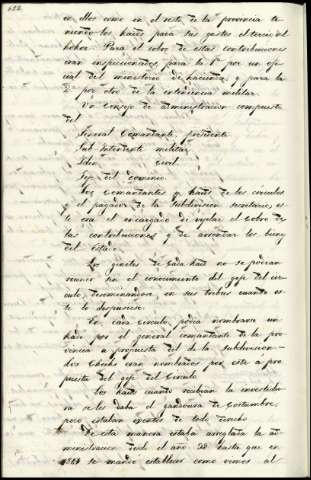 122.
en ellos como en el resto de la provincia te-
niendo los kaids para sus gastos el tercio del
hokor. Para el cobro de estas contribuciones
eran inspeccionados, para la 1ª por un ofi-
cial del ministerio de hacienda y para la
2ª por otro de la intendencia militar.
Un consejo de administracion compuesto
del
General Comandante, presidente
Sub-Intendente militar,
Idem civil
Gefe del dominio.
Los Comandantes y kaids de los circulos
y el pagador de la Subdivision secretario, es-
te era el encargado de vigilar el cobro de
las contribuciones y de arrendar los bienes
del Estado.
Los ginetes de cada kaid no se podian
reunir sin el conocimiento del gefe del cir-
culo, diseminandose, en sus tribus cuando es-
te lo dispusiese.
En cada circulo, podia nombrarse un
kaid por el general comandante de la pro-
vincia a propuesta del de la subdivision-
los cheiks eran nombrados por este á pro-
puesta del gefe del Circulo.
Los kaids cuando recibian la investidu-
ra se les daba el gandoura de costumbre,
pero estaban esentos de todo derecho
De esta manera estaba arreglada la ad-
ministracion desde el año 38 hasta que en
se mandó establecer como vemos al